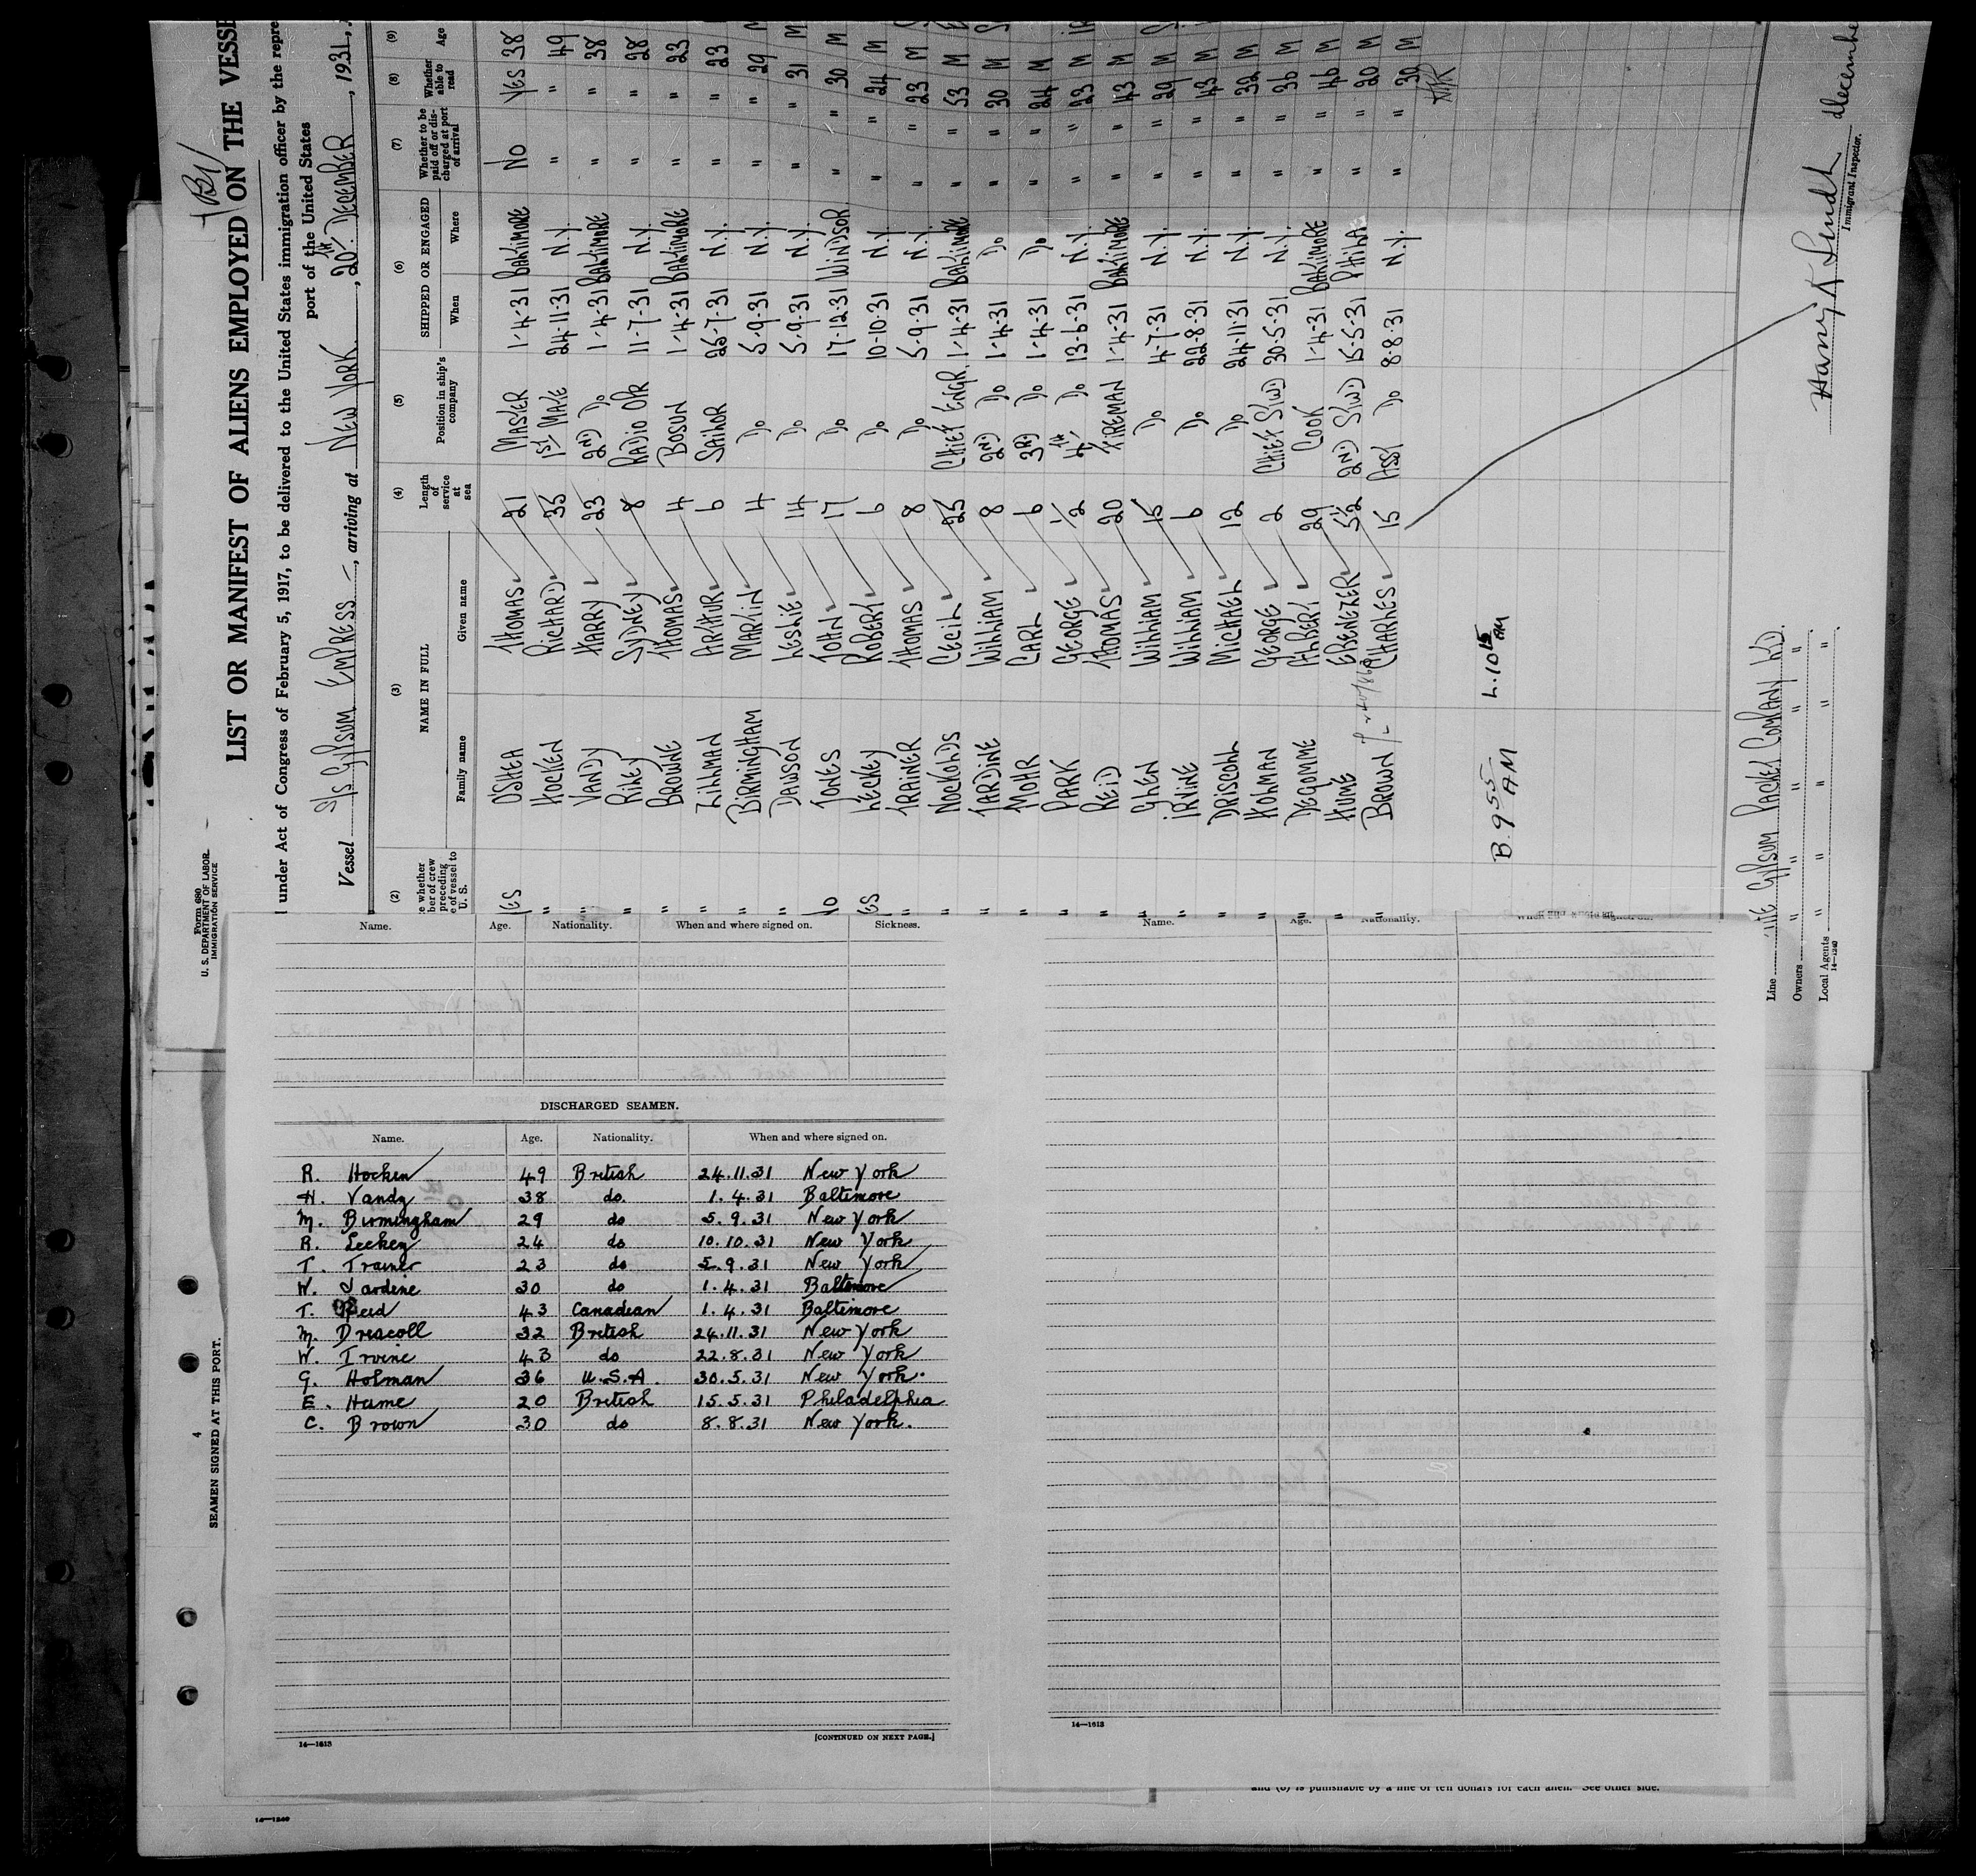 LIST OR MANIFEST OF ALIENS EMPLOYED ON THE VESSE
under Act of Congress of February 5, 1917, to be delivered to the United States immigration officer by the repre
port of the United States
Vessel S/S GYPSUM EMPRESS, arriving at NEW YORK, 20th DECEMBER, 1931,
Form 680
U. S. DEPARTMENT OF LABOR
IMMIGRATION SERVICE
(2) (3) (4) (5) (6) (7) (8) (9)
e whether
ber of crew
preceding
e of vessel to
U. S.
NAME IN FULL
Family name Given name
Length of service at sea
Position in ship's company
SHIPPED OR ENGAGED
When Where
Whether to be paid off or discharged at port of arrival
Whether able to read
Age
YES O'SHEA THOMAS 21 MASTER 1-4-31 BALTIMORE NO YES 38
" HOCKEN RICHARD 35 1ST MATE 24-11-31 N.Y. " " 49
" VANDY HARRY 23 2ND DO 1-4-31 BALTIMORE " " 38
" RILEY SYDNEY 8 RADIO OPR 11-7-31 N.Y. " " 28
" BROWNE THOMAS 4 BOSUN 1-4-31 BALTIMORE " " 23
" ZILLMAN ARTHUR 6 SAILOR 25-7-31 N.Y. " " 23
" BIRMINGHAM MARTIN 4 DO 5-9-31 N.Y. " " 29 M
" DAWSON LESLIE 14 DO 5-9-31 N.Y. " " 31 M
NO JONES JOHN 17 DO 17-12-31 WINDSOR " " 30 M
YES LECKEY ROBERT 6 DO 10-10-31 N.Y. " " 24 M
" TRAINER THOMAS 8 DO 5-9-31 N.Y. " " 23 M
" NOCKOLDS CECIL 25 CHIEF ENGR. 1-4-31 BALTIMORE " " 53 M
" JARDINE WILLIAM 8 2ND DO 1-4-31 DO " " 30 M
" MOHR CARL 6 3RD DO 1-4-31 DO " " 24 M
" PARK GEORGE 1/2 4TH DO 13-6-31 N.Y. " " 23 M
" REID THOMAS 20 FIREMAN 1-4-31 BALTIMORE " " 43 M
" GLEN WILLIAM 15 DO 4-7-31 N.Y. " " 29 M
" IRVINE WILLIAM 6 DO 22-8-31 N.Y. " " 43 M
" DRISCOLL MICHAEL 12 DO 24-11-31 N.Y. " " 32 M
" HOLMAN GEORGE 2 CHIEF STWD 30-5-31 N.Y. " " 36 M
" DEGOMME ALBERT 29 COOK 1-4-31 BALTIMORE " " 46 M
" HUME EBENEZER 5 1/2 2ND STWD 15-5-31 PHILA. " " 20 M
BROWN CHARLES 15 ASST DO 8-8-31 N.Y. " " 30 M
B. 9 55 AM L. 10 15 AM
Line THE GYPSUM PACKET COMPANY LTD.
Owners " " " " "
Local Agents " " " " "
14—1240
Immigrant Inspector.
december
Name. Age. Nationality. When and where signed on. Sickness.
Name. Age. Nationality.
DISCHARGED SEAMEN.
Name. Age. Nationality. When and where signed on.
R. Hocken 49 British 24.11.31 New York
H. Vandy 38 do 1.4.31 Baltimore
M. Birmingham 29 do 5.9.31 New York
R. Leckey 24 do 10.10.31 New York
T. Trainer 23 do 5.9.31 New York
W. Jardine 30 do 1.4.31 Baltimore
T. Reid 43 Canadian 1.4.31 Baltimore
M. Driscoll 32 British 24.11.31 New York
W. Irvine 43 do 22.8.31 New York
G. Holman 36 U.S.A. 30.5.31 New York.
E. Hume 20 British 15.5.31 Philadelphia
C. Brown 30 do 8.8.31 New York.
14—1613
[CONTINUED ON NEXT PAGE.]
14—1613
4
SEAMEN SIGNED AT THIS PORT.
and (b) is punishable by a fine of ten dollars for each alien. See other side.
14—1240